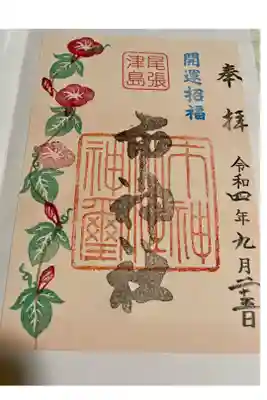 奉拝
令和四年九月二十五日
開運招福
尾張
津島
市神社
市神
神璽